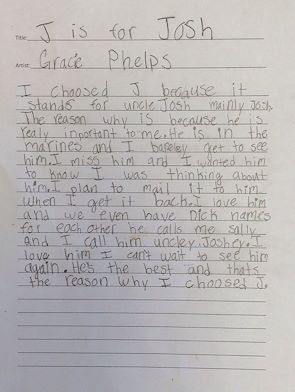 Title: J is for Josh
Artist: Gracie Phelps
I choosed J because it
stands for uncle Josh mainly Josh.
The reason why is because he is
realy important to me. He is in the
marines and I bareley get to see
him. I miss him and I wanted him
to know I was thinking about
him. I plan to mail it to him
when I get it bach. I love him
and we even have Nick names
for each other he calls me sally
and I call him uncley Joshey. I
love him I can't wait to see him
again. He's the best and thats
the reason why I choosed J.